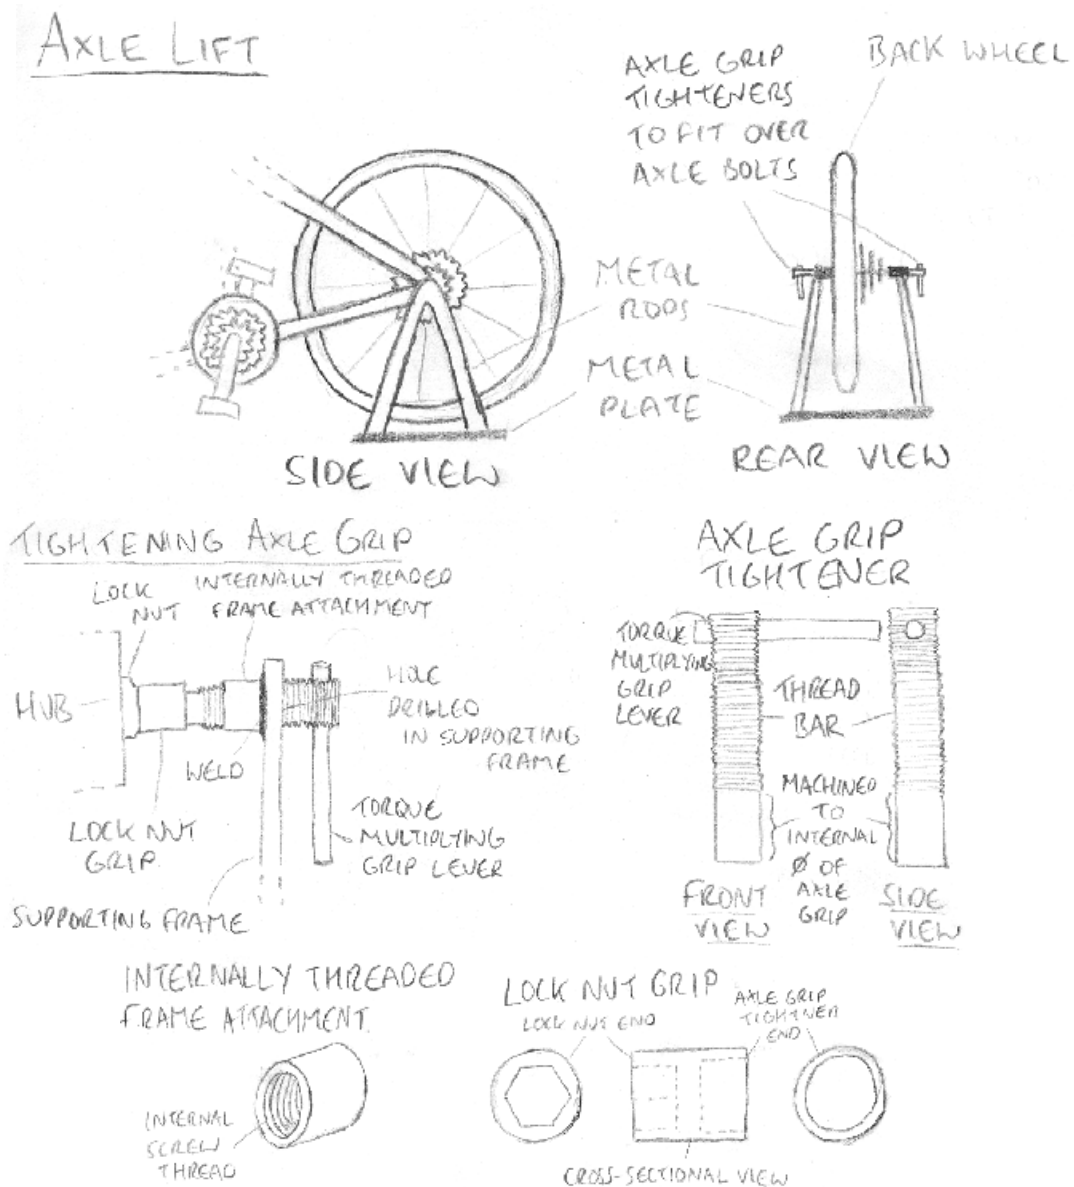 AXLE LIFT
AXLE GRIP
TIGHTENERS
TO FIT OVER
AXLE BOLTS
BACK WHEEL
METAL
RODS
METAL
PLATE
SIDE VIEW
REAR VIEW
TIGHTENING AXLE GRIP
LOCK
NUT
INTERNALLY THREADED
FRAME ATTACHMENT
HUB
WELD
HOLE
DRILLED
IN SUPPORTING
FRAME
LOCK NUT
GRIP
TORQUE
MULTIPLYING
GRIP LEVER
SUPPORTING FRAME
AXLE GRIP
TIGHTENER
TORQUE
MULTIPLYING
GRIP
LEVER
THREAD
BAR
MACHINED
TO
INTERNAL
Ø OF
AXLE
GRIP
FRONT
VIEW
SIDE
VIEW
INTERNALLY THREADED
FRAME ATTACHMENT
INTERNAL
SCREW
THREAD
LOCK NUT GRIP
LOCK NUT END
AXLE GRIP
TIGHTNER
END
CROSS-SECTIONAL VIEW